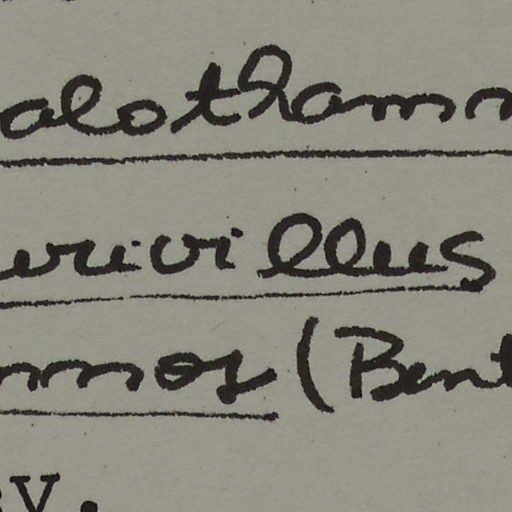 alothamn
urivillus
mnos (Bent
y.